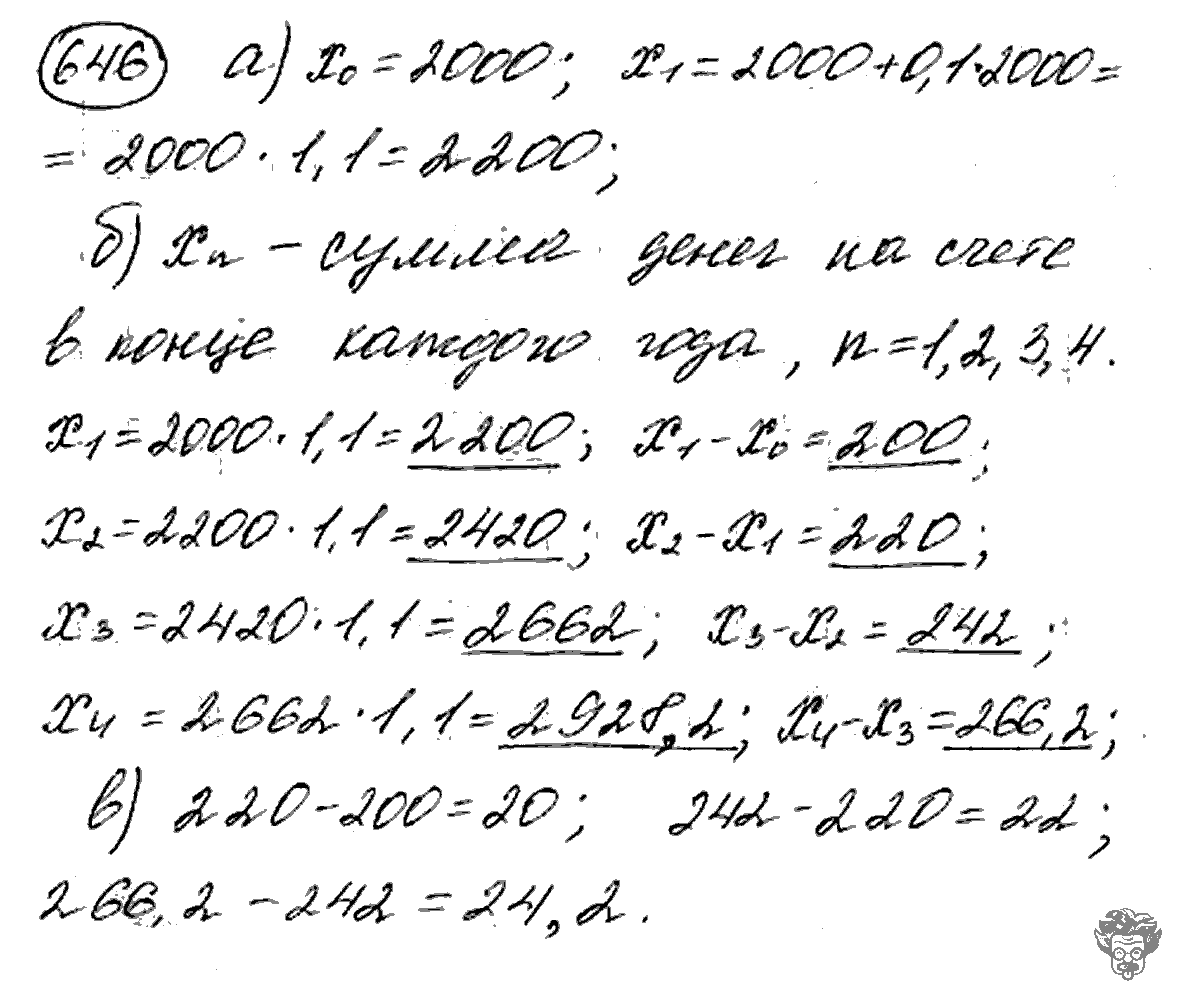 646 а) x₀ = 2000; x₁ = 2000 + 0,1·2000 =
= 2000 · 1,1 = 2200;
б) xₙ – сумма денег на счете
в конце каждого года, n = 1, 2, 3, 4.
x₁ = 2000 · 1,1 = 2200; x₁ – x₀ = 200;
x₂ = 2200 · 1,1 = 2420; x₂ – x₁ = 220;
x₃ = 2420 · 1,1 = 2662; x₃ – x₂ = 242;
x₄ = 2662 · 1,1 = 2928,2; x₄ – x₃ = 266,2;
в) 220 – 200 = 20; 242 – 220 = 22;
266,2 – 242 = 24,2.